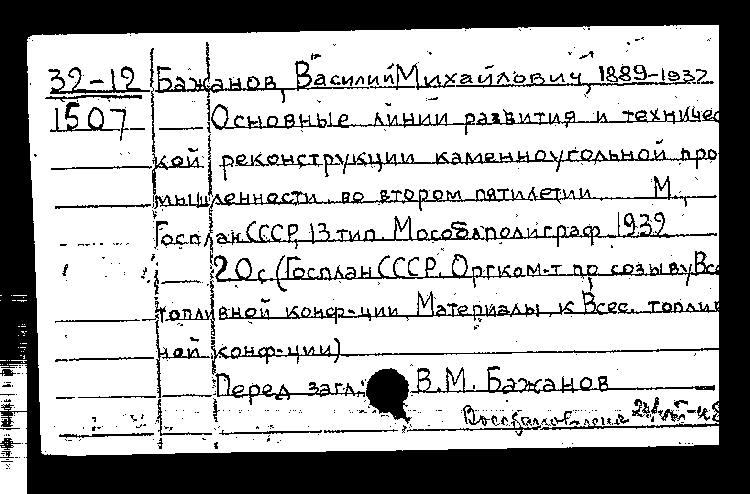 32-12 Бажанов, Василий Михайлович, 1889-1937
1507 Основные линии развития и техничес
кой реконструкции каменноугольной про
мышленности во втором пятилетии М.,
Госплан СССР, 13 тип. Мособлполиграф 1932
20с. (Госплан СССР. Оргком-т по созыву Все
топливной конф-ции. Материалы к Всес. топлив
ной конф-ции)
Перед загл.: В.М. Бажанов
Восстановления